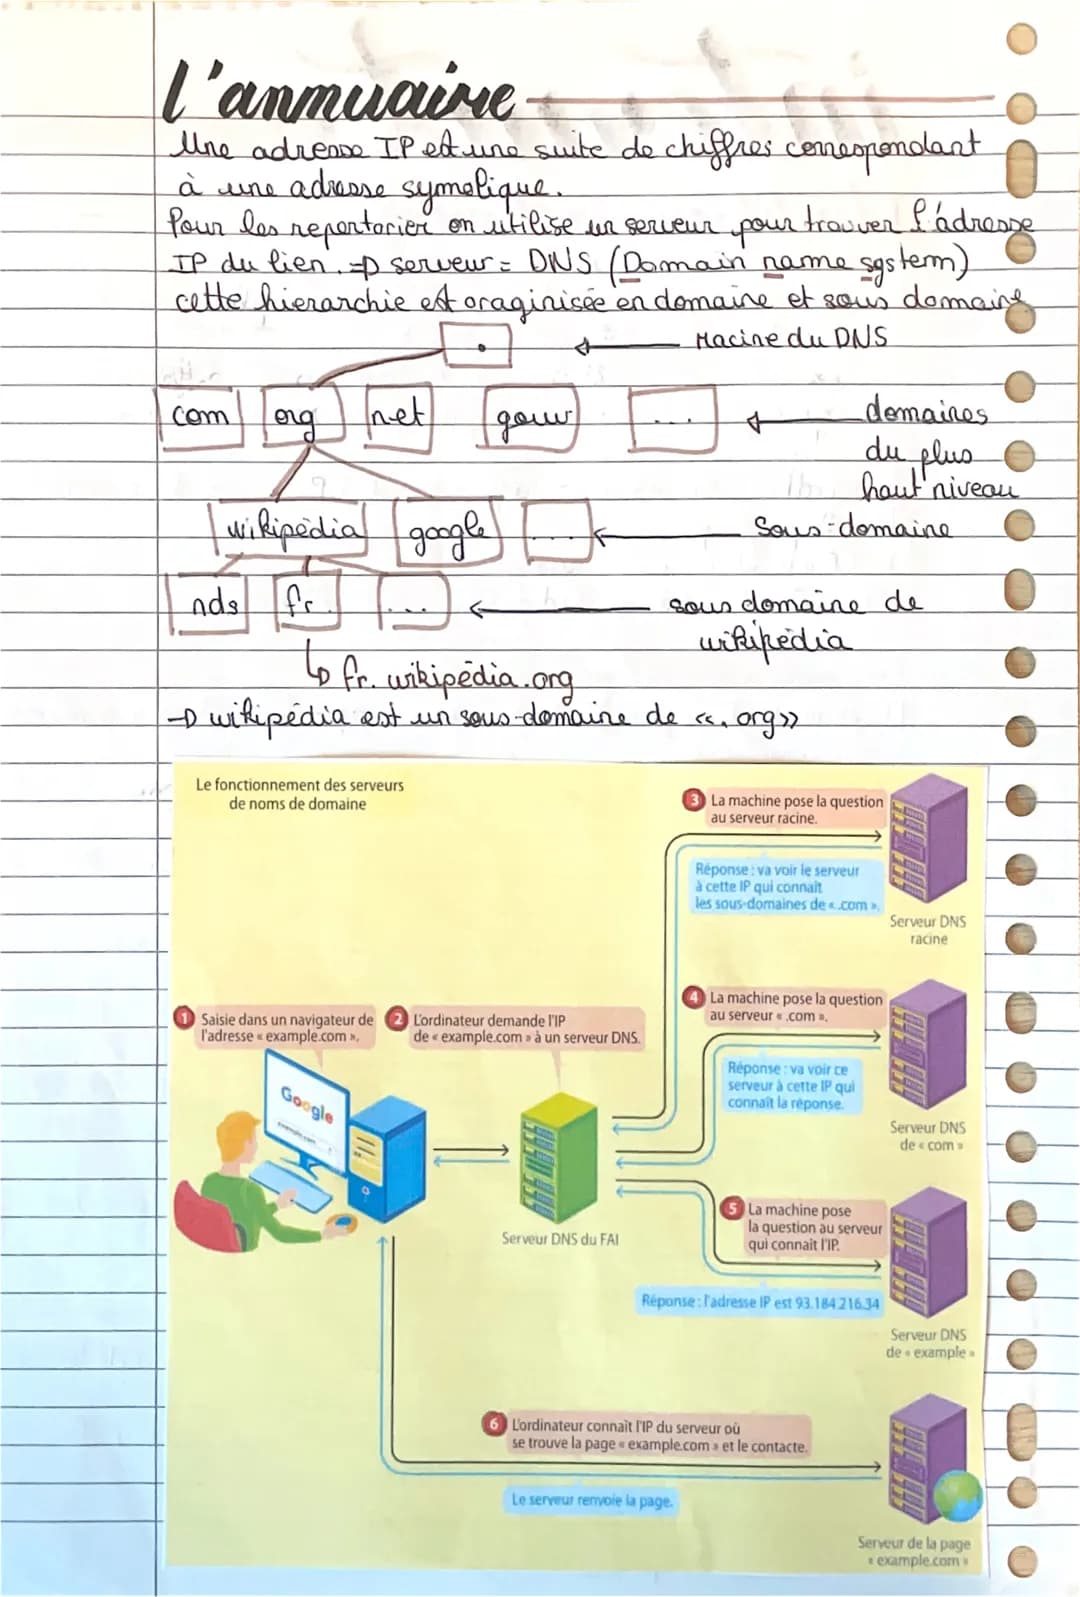 l'annuaire
Une adresse IP est une suite de chiffres correspondant
à une adresse symolique.
Pour les reportorier on utilise un serveur pour trouver l'adresse
IP du lien. => serveur = DNS (Domain name system)
cette hierarchie est oraginisée en domaine et sous domaine
. ← racine du DNS
com org net gouv ... ← domaines
du plus
haut niveau
wikipédia google ... ← Sous-domaine
nds fr ... ← sous domaine de
wikipédia
↳ fr. wikipédia.org
→ wikipédia est un sous-domaine de «. org»
Le fonctionnement des serveurs
de noms de domaine
3 La machine pose la question
au serveur racine.
Réponse : va voir le serveur
à cette IP qui connaît
les sous-domaines de « .com ».
Serveur DNS
racine
1 Saisie dans un navigateur de
l'adresse « example.com ».
2 L'ordinateur demande l'IP
de « example.com » à un serveur DNS.
4 La machine pose la question
au serveur « .com ».
Réponse : va voir ce
serveur à cette IP qui
connaît la réponse.
Google
Serveur DNS
de « com »
Serveur DNS du FAI
5 La machine pose
la question au serveur
qui connaît l'IP.
Réponse : l'adresse IP est 93.184.216.34
Serveur DNS
de « example »
6 L'ordinateur connaît l'IP du serveur où
se trouve la page « example.com » et le contacte.
Le serveur renvoie la page.
Serveur de la page
« example.com »